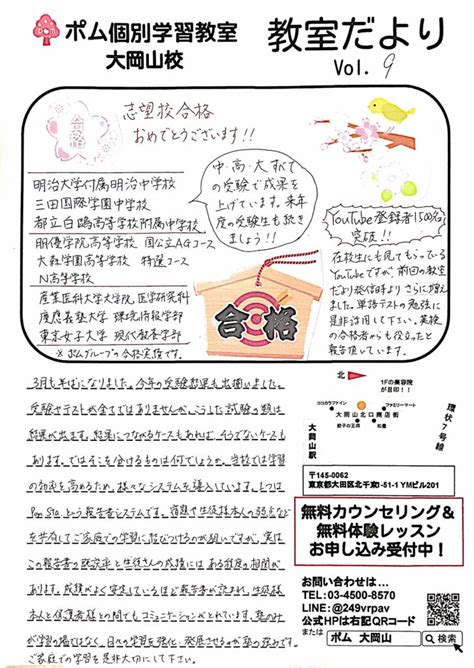 ポム個別学習教室
大岡山校
教室だより
Vol. 9
合格
志望校合格
おめでとうございます!!
明治大学付属明治中学校
三田国際学園中学校
都立白鴎高等学校附属中学校
明優学院高等学校 国公立AGコース
大森学園高等学校 特選コース
N高等学校
産業医科大学大学院 医学研究科
慶應義塾大学 環境情報学部
東京女子大学 現代教養学部
※ポムグループの合格実績です。
中・高・大すべて
の受験で成果を
上げています。来年
度の受験生も続き
ましょう!!
合格
YouTube登録者1500名
突破!!
在校生にも見てもらっている
YouTubeですが、前回の教室
だより発信時よりさらに増え
ました。単語テストの勉強に
是非活用して下さい。英検
の合格者からも役立ったと
報告頂いています。
3月も半ばになりました。今年の受験結果も出揃いました。
受験やテストが全てではありませんが、こうした試験の類は
結果が出ます。結果につながるケースもあれば、そうでないケースも
あります。ではそこを分けるものは何でしょうか。当校では学習
の効果を高めるため、様々なシステムを導入しています。1つは
という報告書システムです。宿題や生徒様本人の弱点など
を共有してご家庭での学習に結びつけるのが狙いです。実は
この報告書の既読率と生徒さんの成績にはある程度の相関が
あります。成績がよく安定しているほど報告書が読まれ、生徒様
本人と保護者様との間でもコミュニケーションがとれています。塾のみが
学習の場ではなく、日々の学習を強化・発展させるのが塾の強みです。
ご家庭での学習を是非大切にして下さい。
北
1Fの美容院
が目印!!
ココカラファイン
ファミリーマート
大岡山北口商店街
餃子の王将
松屋
大岡山駅
環状7号線
〒145-0062
東京都大田区北千束3-51-1 YMビル201
無料カウンセリング&
無料体験レッスン
お申し込み受付中!
お問い合わせは...
TEL:03-4500-8570
LINE:@249vrpav
公式HPは右記QRコード
または
ポム 大岡山
検索